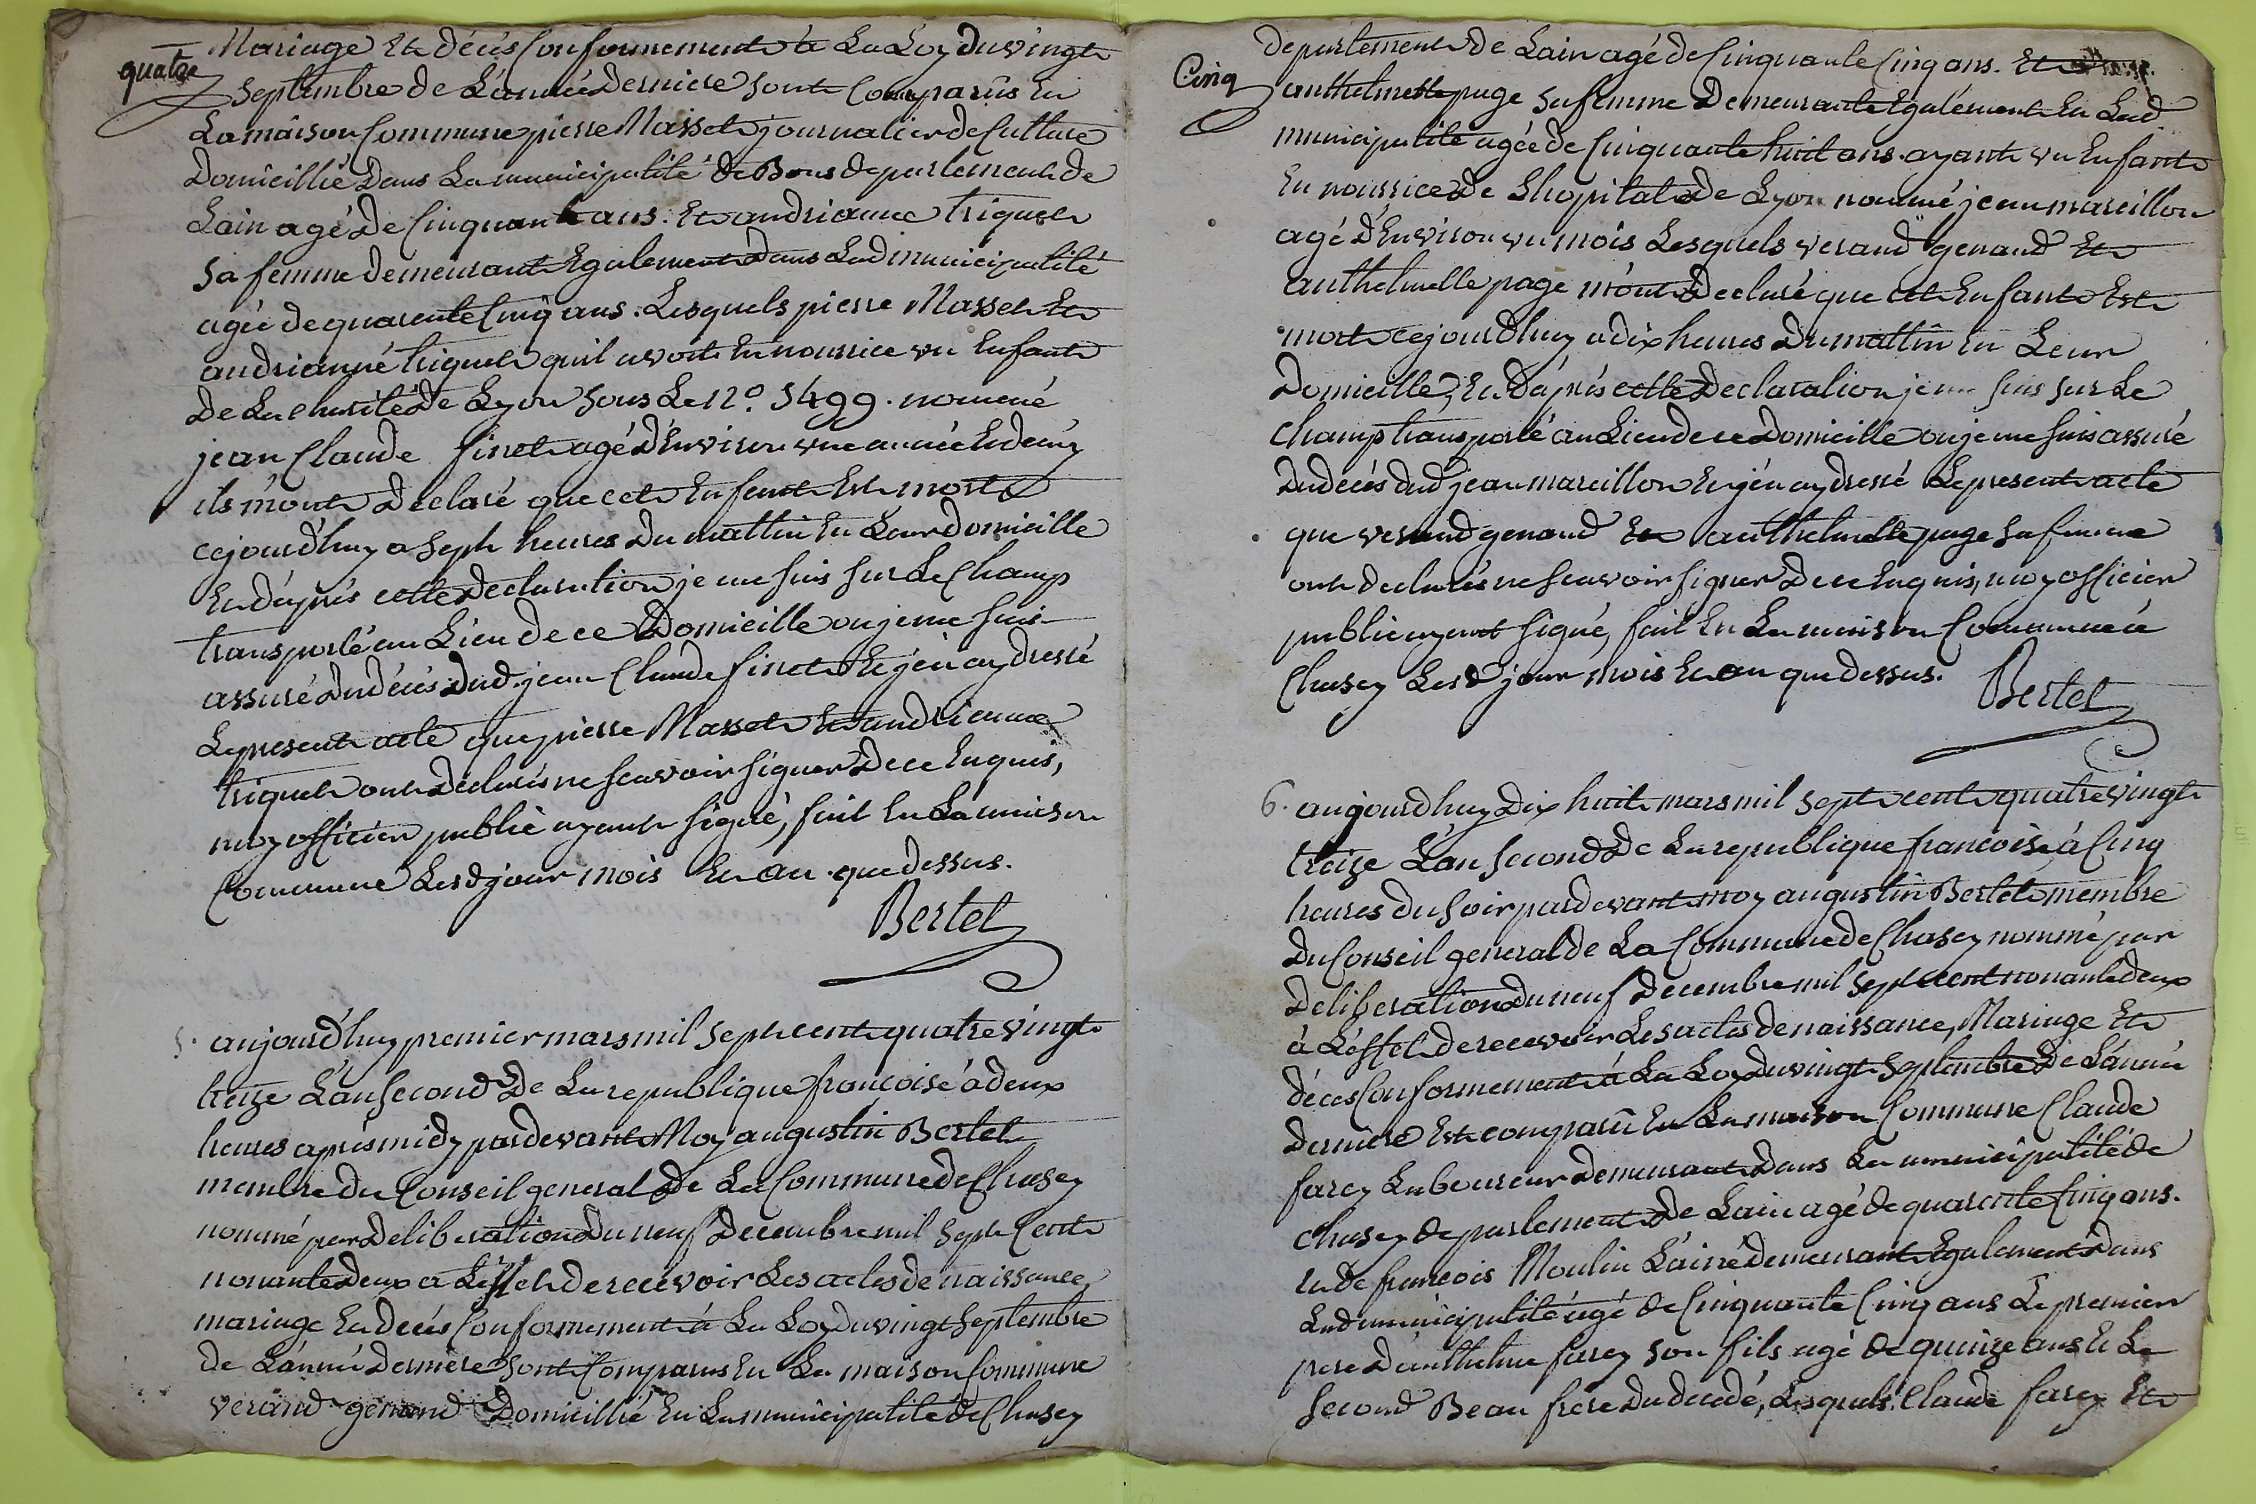 quatre
Mariage Et décès Conformement à La Loy du vingt
Septembre de L'année derniere sont Comparus En
La maison Commune pierre Masset journalier de Culture
Domicillié Dans La municipalité de Bons departement de
Lain agé De Cinquante ans. Et andrianne triquet
Sa femme demeurant Egalement Dans Lad municipalité
agée de quarente Cinq ans. Lesquels pierre Masset Et
andrianne triquet quil avoit En nourrice un Enfant
De La charité de Lyon Sous Le No. 5499. nommé
jean Claude finet agé d'Environ une année Et demy
ils m'ont Declaré que cet Enfant Est mort
cejourd'huy a Sept heures Du mattin En Leur domicille
Et d'après cette Declaration je me suis sur Le Champ
transporté au Lieu de ce Domicille ou je me suis
assuré Du décès Dud. jean Claude finet Et j'en ay dressé
Le present acte que pierre Masset Et andrianne
triquet ont Déclarés ne sçavoir signer De ce Enquis,
moy officier public ayant signé, fait En La maison
Commune Lesd jour mois Et an que dessus.
Bertet
5. aujourd'huy premier mars mil sept cent quatre vingt
treize L'an second De La republique françoise à deux
heures après midy pardevant Moy augustin Bertet
membre du Conseil general De La Commune de Chasey
nommé par Deliberation Du neuf Decembre mil sept Cent
nonante deux a L'effet de recevoir Les actes de naissance
mariage Et décès Conformement à La Loy du vingt Septembre
de L'année Derniere sont Comparus En La maison Commune
verand genand Domicillié En La municipalité de Chasey
Cinq
departement de Lain agé de Cinquante Cinq ans. Et
anthelmette page sa femme Demeurante Egalement En Lad
municipalité agée de Cinquante huit ans. ayant un Enfant
En nourrice de L'hopital de Lyon nommé jean mareillon
agé d'Environ un mois Lesquels verand genand Et
anthelmette page m'ont Declaré que cet Enfant Est
mort cejourdhuy a dix heures Du mattin En Leur
Domicille, Et d'après cette Declaration je me suis sur Le
Champ transporté au Lieu de ce Domicille ou je me suis assuré
Du décès dud jean mareillon Et j'en ay dressé Le present acte
que verand genand Et anthelmette page sa femme
ont declarés ne sçavoir signer De ce Enquis, moy officier
public ayant signé, fait En La maison Commune à
Chasey Lesd jour mois Et an que dessus.
Bertet
6. aujourd'huy Dix huit mars mil sept cent quatre vingt
treize L'an second De La republique françoise à Cinq
heures du soir pardevant moy augustin Bertet membre
Du Conseil general de La Commune de Chasey nommé par
Deliberation Du neuf Decembre mil sept cent nonante deux
à L'effet de recevoir Les actes de naissance, Mariage Et
décès Conformement à La Loy Du vingt Septembre De L'année
derniere Est comparû En La maison Commune Claude
farcy Laboureur demeurant Dans La municipalité de
chasey departement De Lain agé de quarente Cinq ans.
Et de françois Moulin L'ainé demeurant Egalement Dans
Lad municipalité âgé de Cinquante Cinq ans Le premier
pere D'anthelme farcy son fils agé de quinze ans Et Le
second Beau frere Du decedé, Lesquels Claude farcy Et